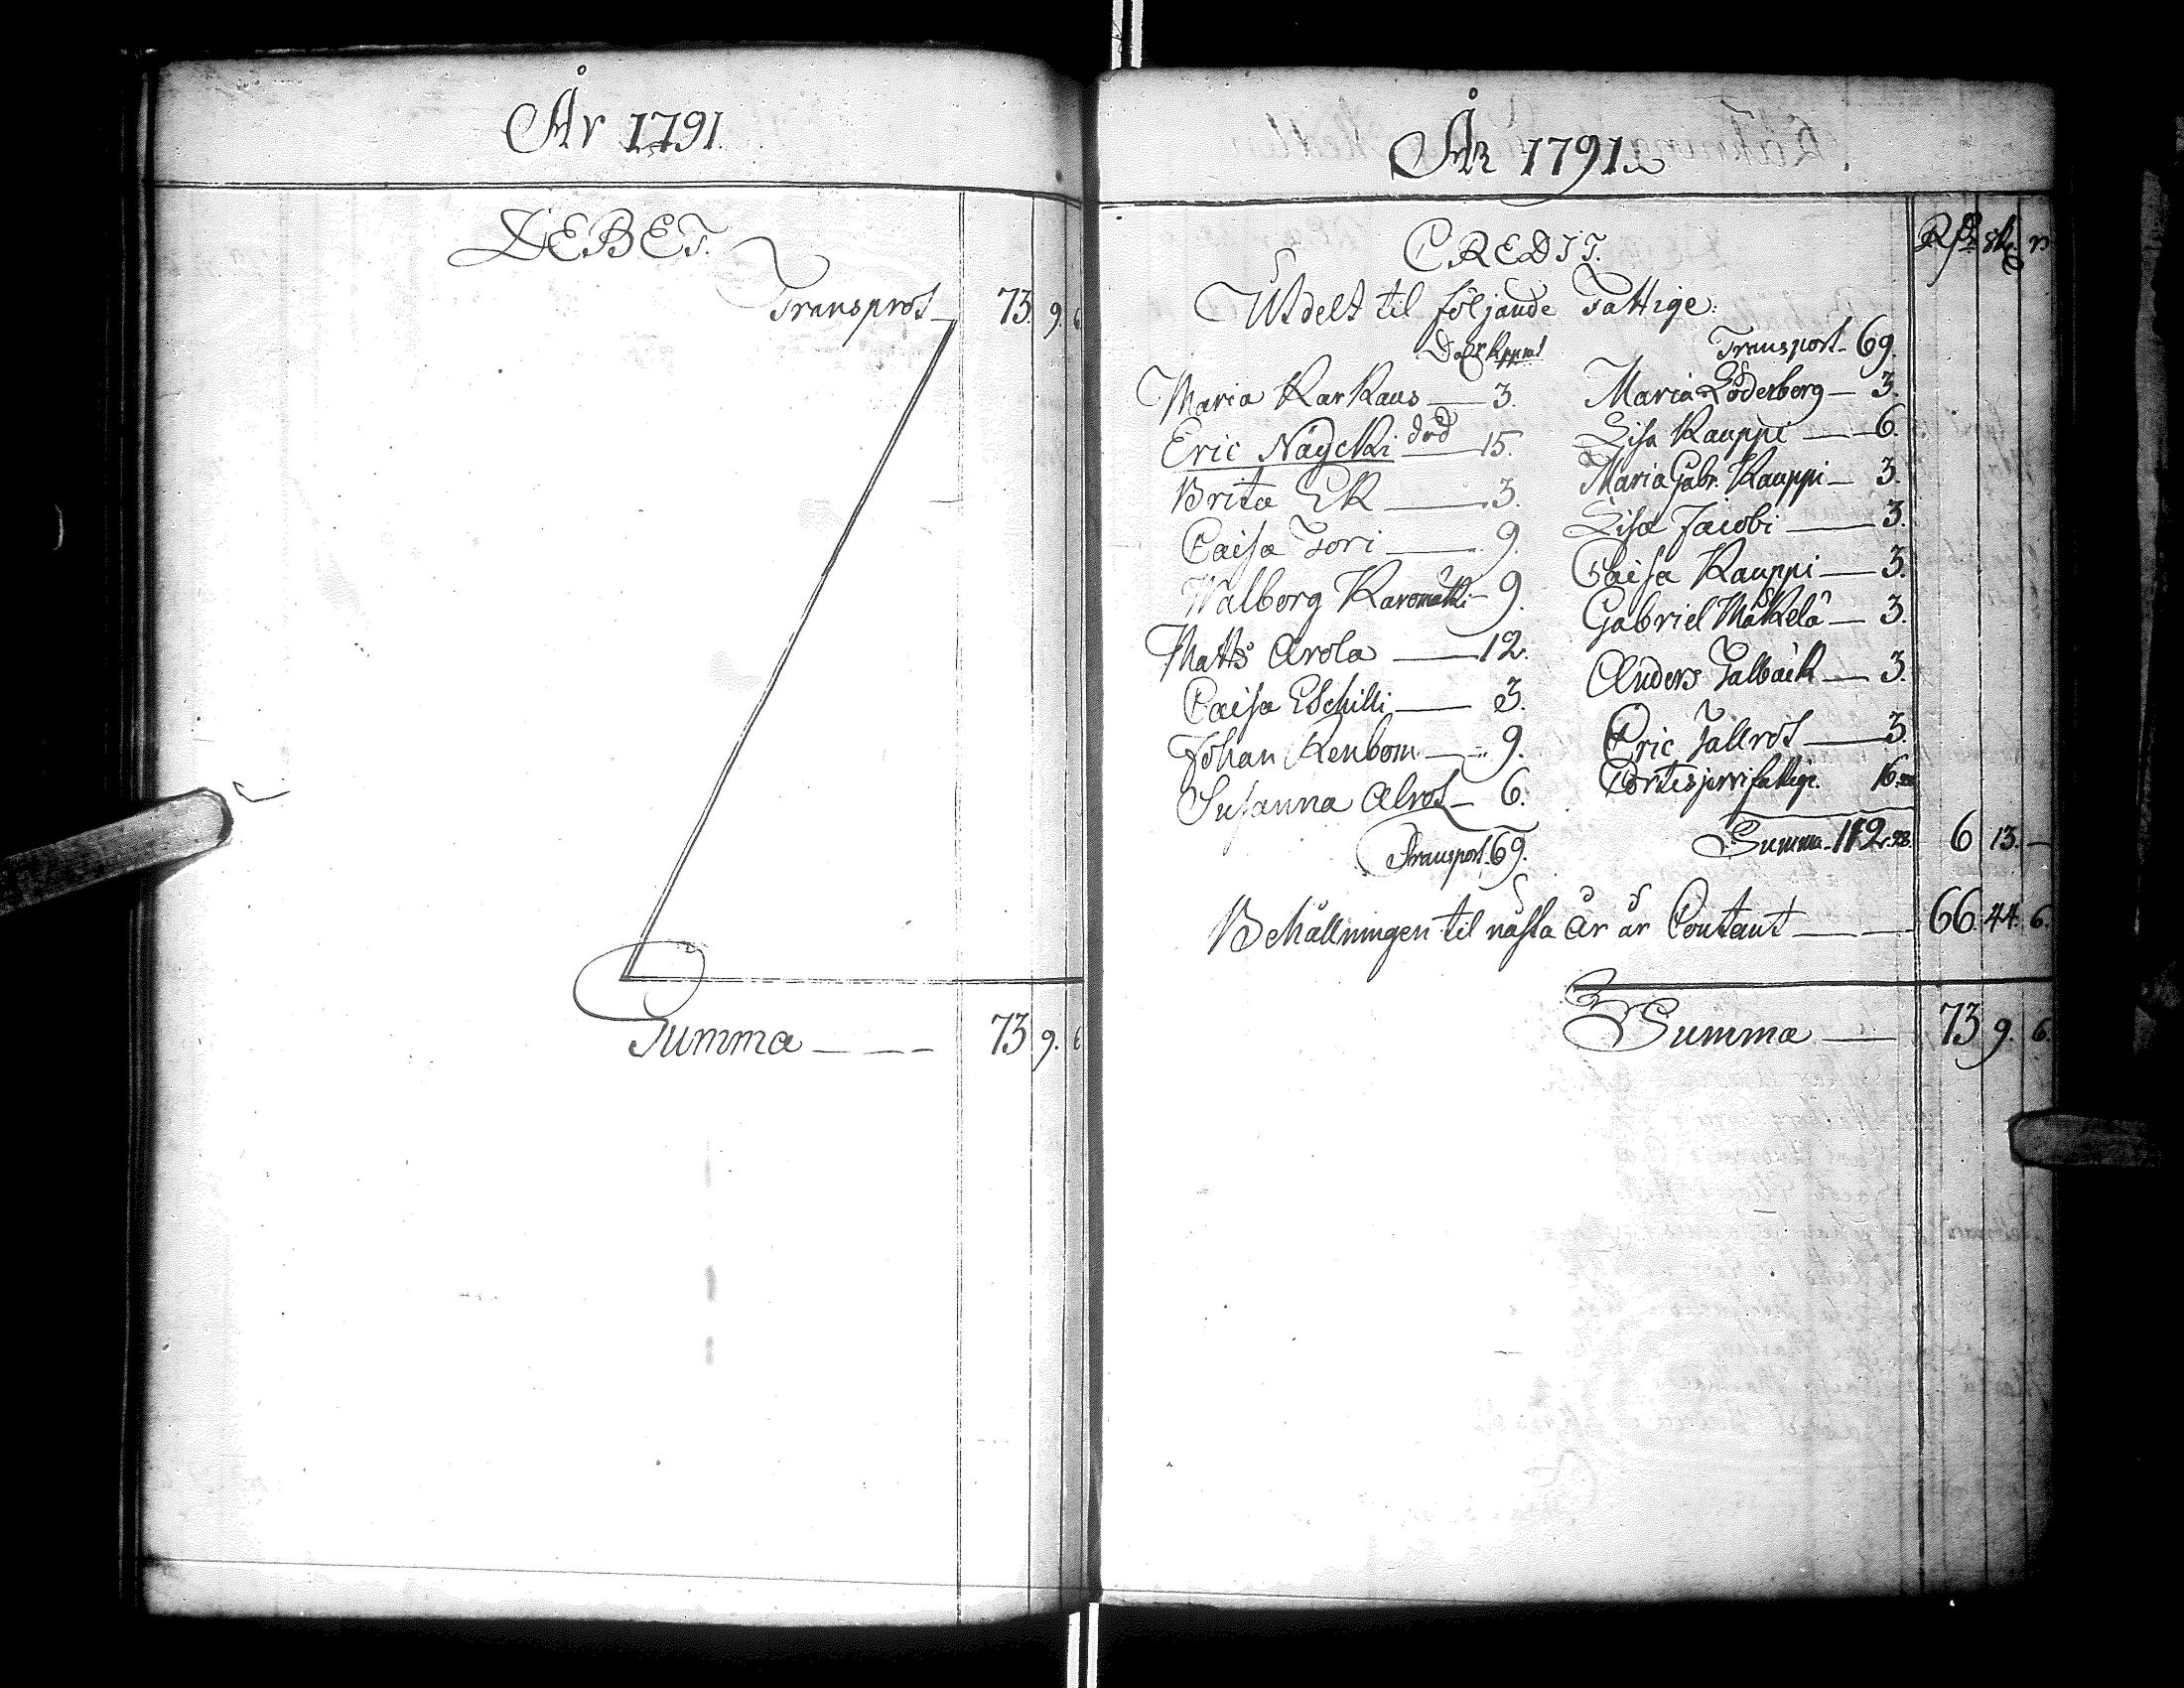 År 1791.
DEBET.
Transprot 73. 9. 6.
Summa 73 9. 6
År 1791.
CREDIT. Rdr sk. rs
Utdelt til följande Fattige:
Dalr Kppmt
Maria Karkaus 3.
Eric Näycki död 15.
Brita Ek 3.
Caisa Fori 9.
Walborg Karomäki 9.
Matts Arola 12.
Caisa Eskilli 3.
Johan Renbom 9.
Susanna Alrot 6.
Transport 69.
Transport 69.
Maria Söderberg 3.
Lisa Kauppi 6.
Maria Gabr. Kauppi 3.
Lisa Jacobi 3.
Caisa Kauppi 3.
Gabriel Mäkelä 3.
Anders Falbäck 3.
Eric Fallrot 3.
Cortesjerfi fattige. 16.28
Summa 112.28. 6 13. —
Behållningen til nästa år är Contant 66. 44. 6.
Summa 73 9. 6.